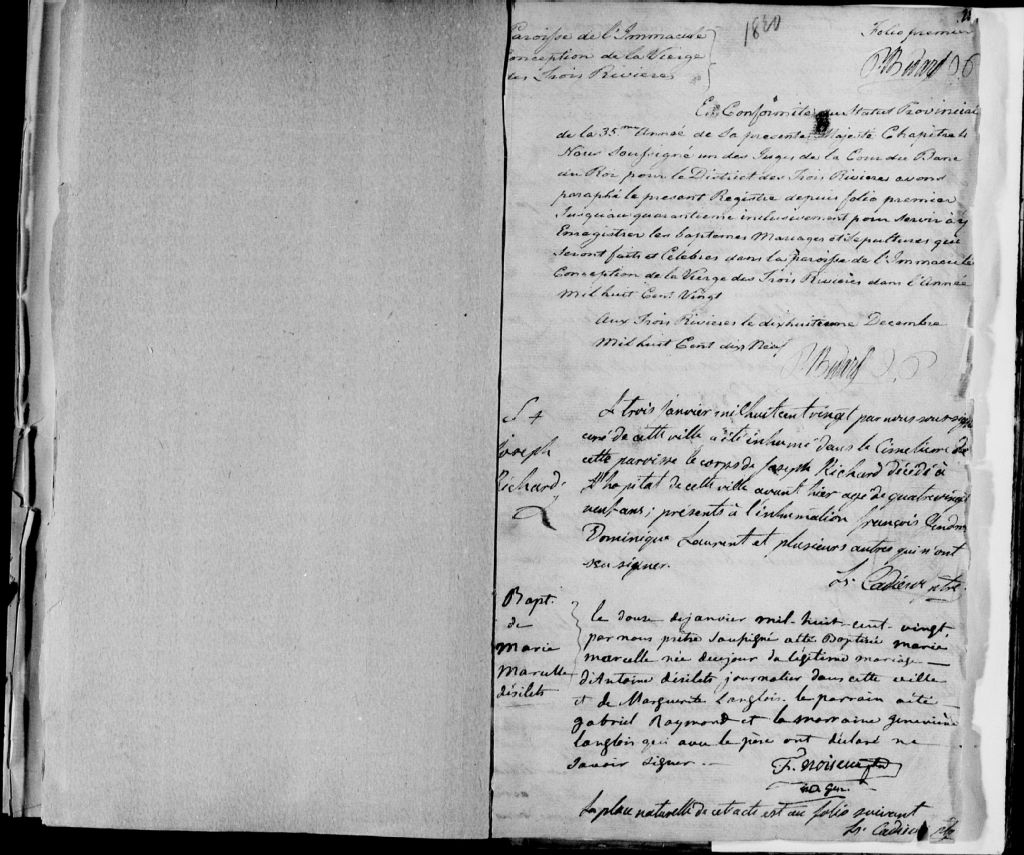 1820
Folio premier
P. Bedard
Paroisse de l'Immaculé
Conception de la Vierge
des Trois Rivieres
En Conformité au Statut Provincial
de la 35.me Année de Sa presente Majesté Chapitre 4
Nous Soussigné un des Juges de la Cour du Banc
du Roi pour le District des Trois Rivieres avons
paraphé le present Registre depuis folio premier
Jusqu'au quarantieme inclusivement pour servir à y
Enregistrer les baptemes Mariages et Sepultures qui
Seront faits et Célébrés dans la paroisse de l'Immaculé
Conception de la Vierge des Trois Rivieres dans l'Année
Mil huit Cent Vingt
Aux Trois Rivieres le dixhuitieme Decembre
Mil huit Cent dix Neuf
P. Bedard
S +
Joseph
Richard
Le trois Janvier mil huit cent vingt par nous soussigné
curé de cette ville a été inhumé dans le Cimetiere de
cette paroisse le corps de Joseph Richard décédé à
L'hopital de cette ville avant hier agé de quatrevingt
neuf ans; présents à l'inhumation françois
Dominique Laurent et plusieurs autres qui n'ont
seu signer.
Ls. Cadieux ptre.
Bapt.
de
Marie
Marcelle
désilets
le douze de janvier mil-huit-cent-vingt,
par nous prêtre Soussigné a été Baptisée marie
marcelle née du jour du légitime mariage
d'Antoine désilets journalier dans cette ville
et de Marguerite Langlois. le parrain a été
gabriel Raymond et la marraine genevieve
langlois qui avec le père ont déclaré ne
Savoir Signer. --
F. Noiseux ptre
vic. Gen.
La place naturelle de cet acte est au folio suivant
Ls. Cadieux ptre